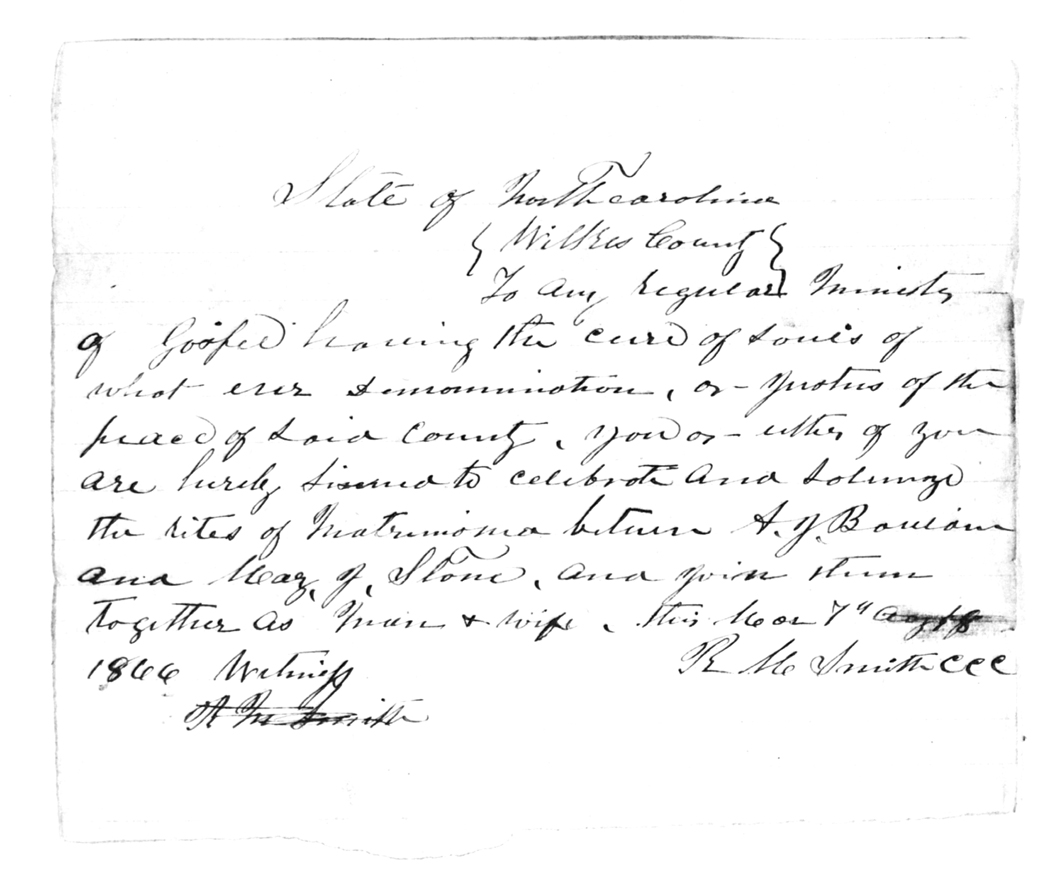 State of North Carolina
{ Wilkes County }
To any regular Minister
of Gospel having the cure of Souls of
what ever denomination, or Justus of the
peace of Said County, you or either of you
are hereby to celebrate and Solemnize
the rites of Matrimonia between A. J.
and J. Stone, and join them
together as Man & wife, this Mar 7th
1866 Witness R M Smith CCC
R M Smith